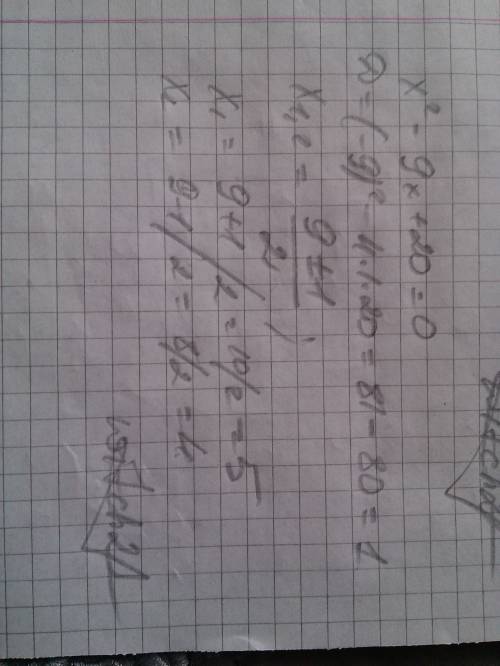 x² - 9x + 20 = 0
D = (-9)² - 4.1.20 = 81 - 80 = 1
x₁,₂ = (9 ± 1)/2 ;
x₁ = 9+1/2 = 10/2 = 5
x₂ = 9-1/2 = 8/2 = 4.